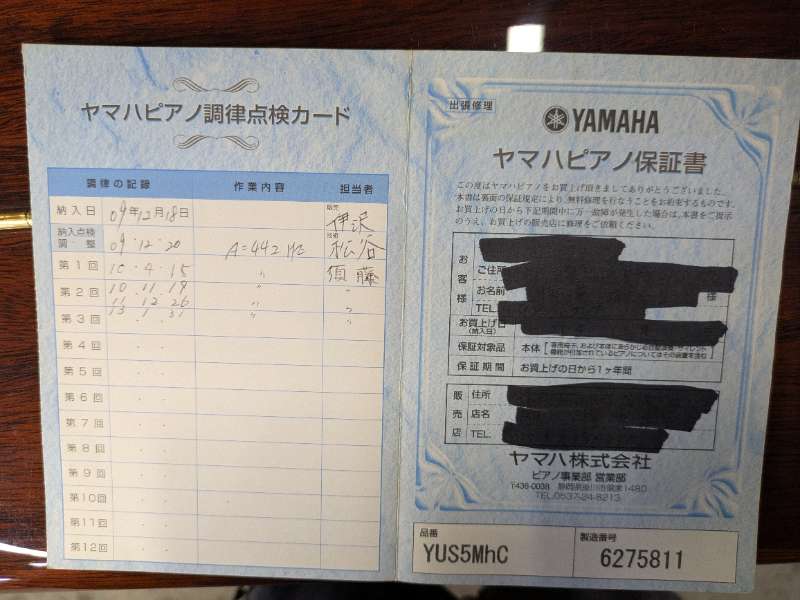 ヤマハピアノ調律点検カード
調律の記録 作業内容 担当者
納入日 09年12月18日 販売 伊沢
納入点検調整 09・12・20 A=442Hz 技術 松谷
第1回 10・4・15 〃 須藤
第2回 10 11 19 〃 〃
11 12 26 〃 〃
第3回 13 1 31 〃 〃
第4回
第5回
第6回
第7回
第8回
第9回
第10回
第11回
第12回
出張修理
YAMAHA
ヤマハピアノ保証書
この度はヤマハピアノをお買上げ頂きましてありがとうございました。
本書は裏面の保証規定により、無料修理を行なうことをお約束するものです。
お買上げの日から下記期間中に万一故障が発生した場合は、本書をご提示
のうえ、お買上げの販売店に修理をご依頼ください。
お客様 ご住所
お名前 様
TEL
お買上げ日
(納入日)
保証対象品 本体
保証期間 お買上げの日から1ヶ年間
販売店 住所
店名
TEL.
ヤマハ株式会社
ピアノ事業部 営業部
〒436-0038 静岡県掛川市領家1480
TEL.0537-24-8213
品番
YUS5MhC
製造番号
6275811